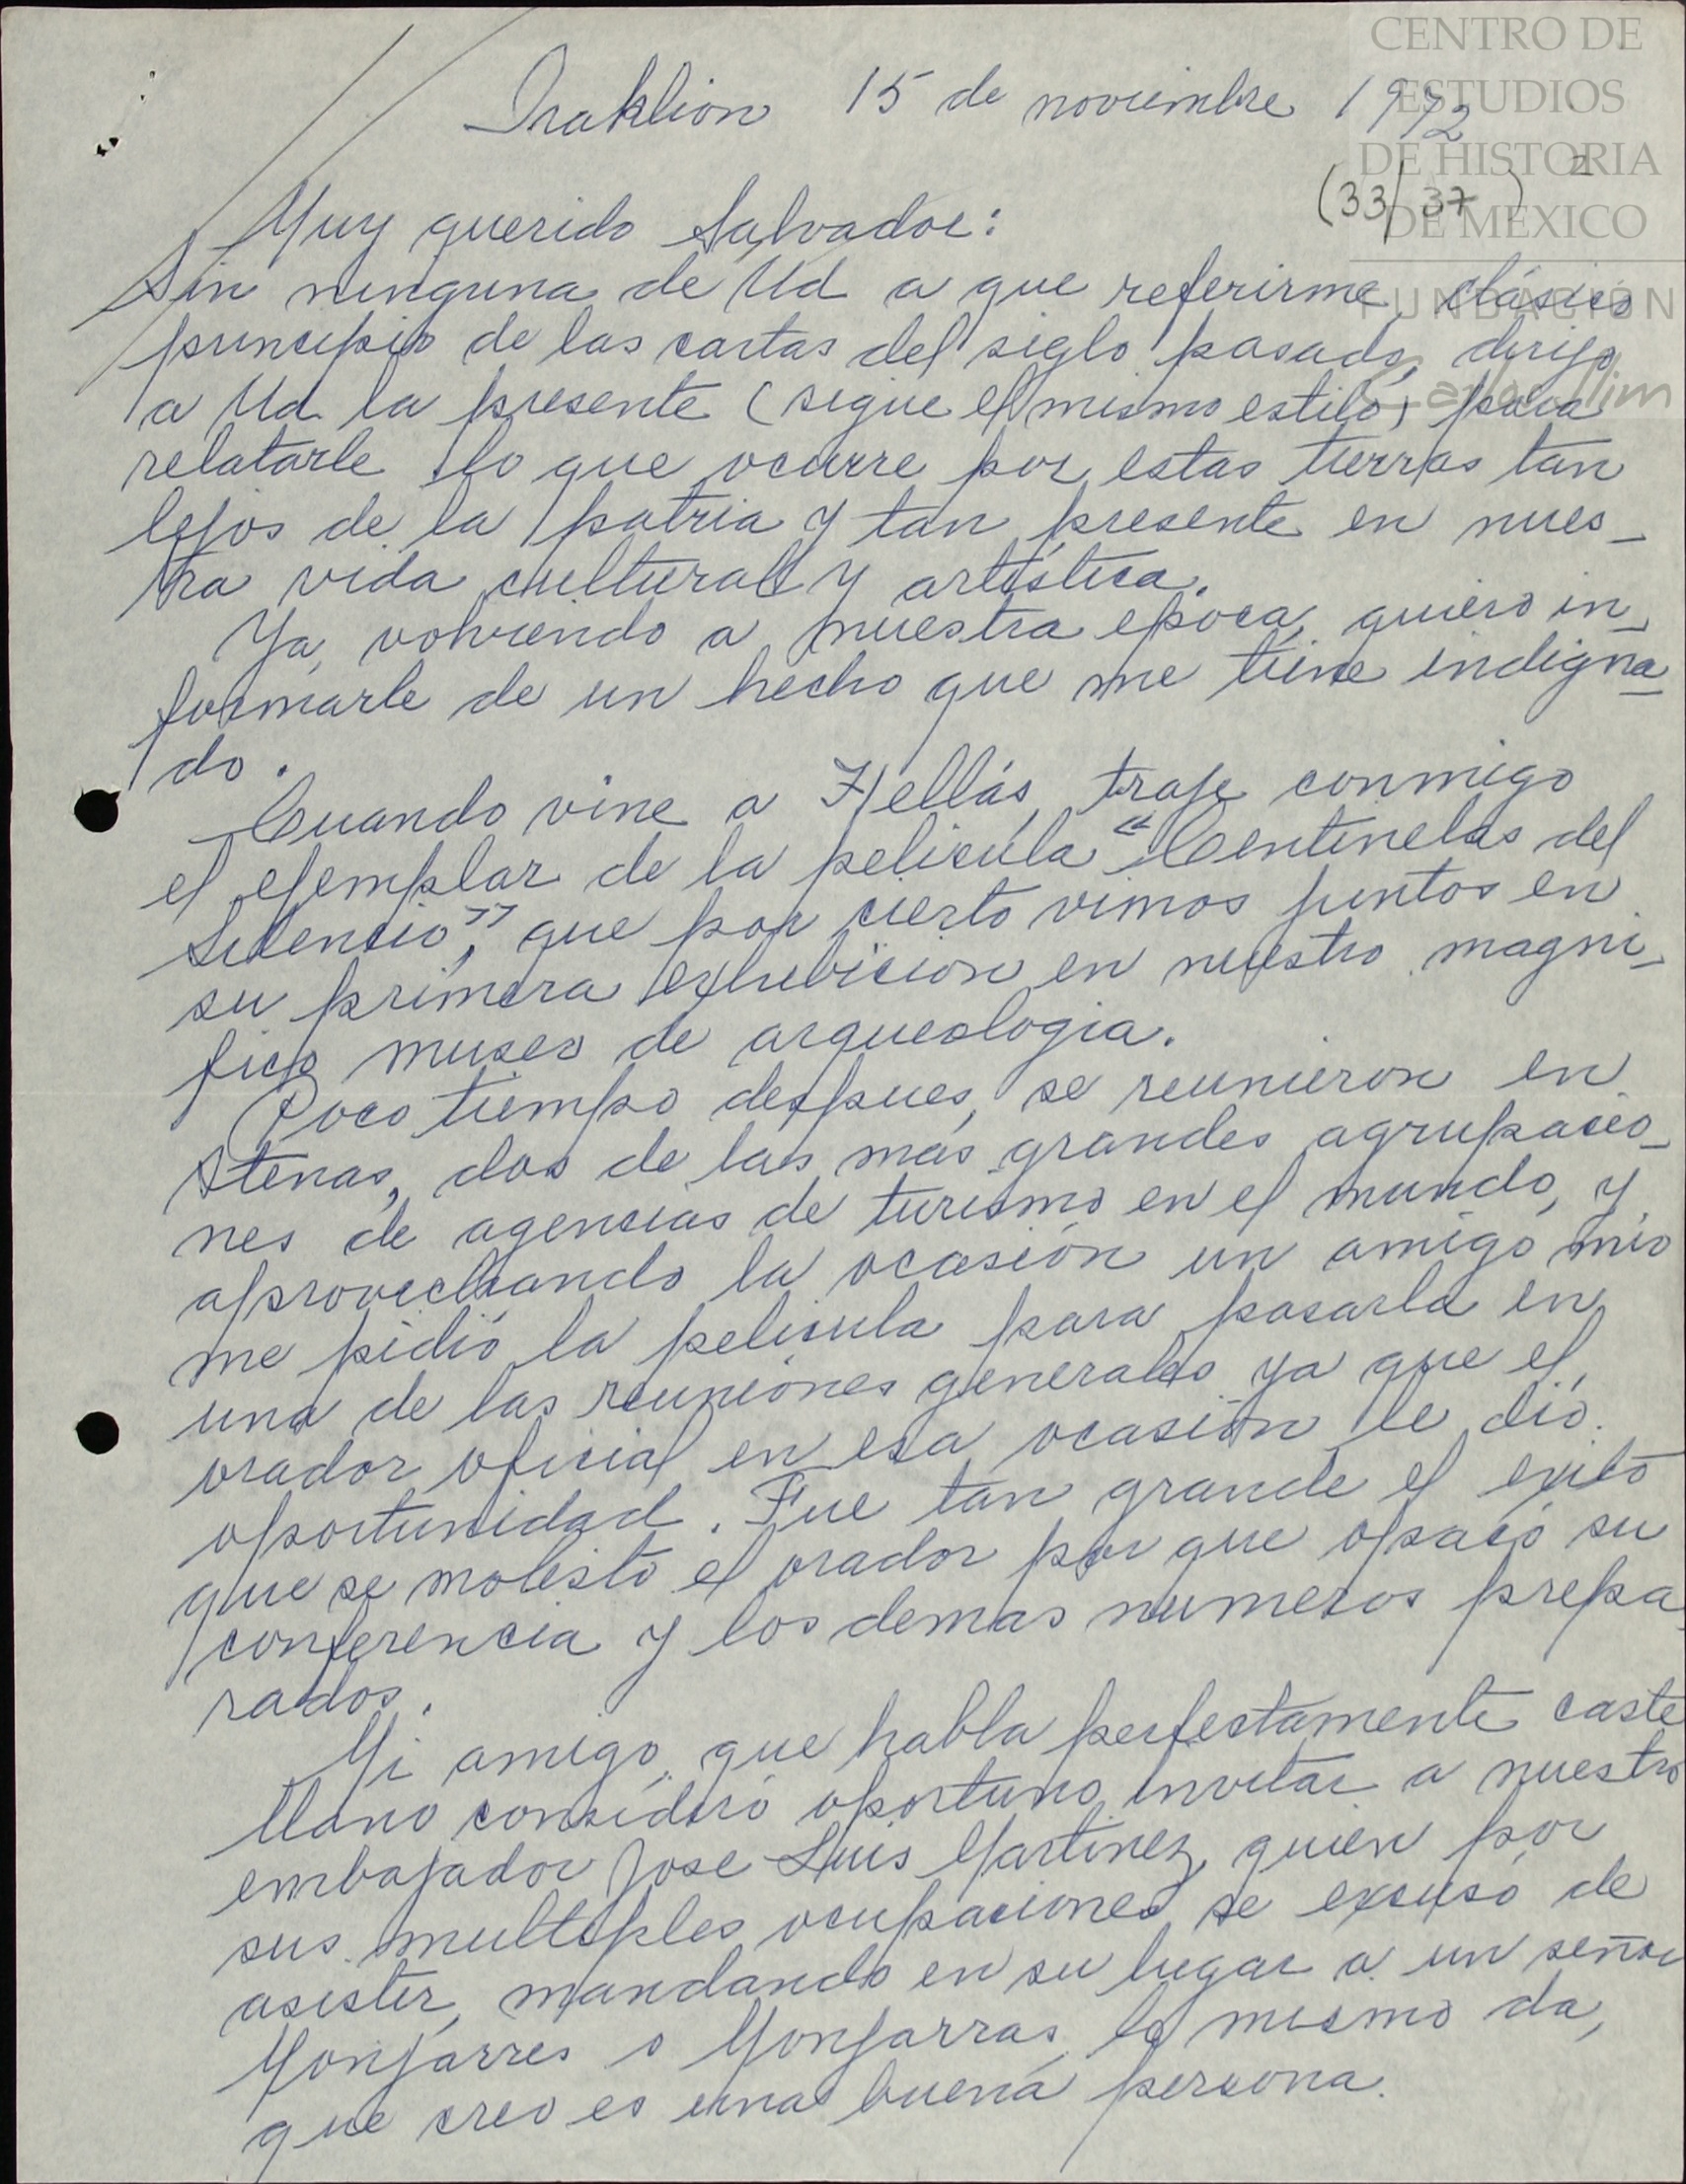 CENTRO DE
ESTUDIOS
DE HISTORIA
DE MEXICO
FUNDACIÓN
Carlos Slim
Iraklion 15 de noviembre 1972
2
(33/37)
Muy querido Salvador:
Sin ninguna de Ud a que referirme, clásico
principio de las cartas del siglo pasado, dirijo
a Ud la presente (sigue el mismo estilo) para
relatarle lo que ocurre por estas tierras tan
lejos de la patria y tan presente en nues_
tra vida cultural y artística.
Ya, volviendo a nuestra epoca, quiero in_
formarle de un hecho que me tiene indigna_
do.
Cuando vine a Hellás, traje conmigo
el ejemplar de la pelicula "Centinelas del
Silencio", que por cierto vimos juntos en
su primera exhibicion en nuestro magni_
fico museo de arqueologia.
Poco tiempo despues, se reunieron en
Atenas, dos de las mas grandes agrupacio_
nes de agencias de turismo en el mundo, y
aprovechando la ocasión un amigo mio
me pidió la pelicula para pasarla en
una de las reuniones generales ya que el
orador oficial en esa ocasión le dió
oportunidad. Fue tan grande el exito
que se molestó el orador por que opacó su
conferencia y los demas numeros prepa_
rados.
Mi amigo, que habla perfectamente caste
llano consideró oportuno invitar a nuestro
embajador Jose Luis Martinez, quien por
sus multiples ocupaciones se excusó de
asistir, mandando en su lugar a un señor
Monjarres o Monjarras, lo mismo da,
que creo es una buena persona.